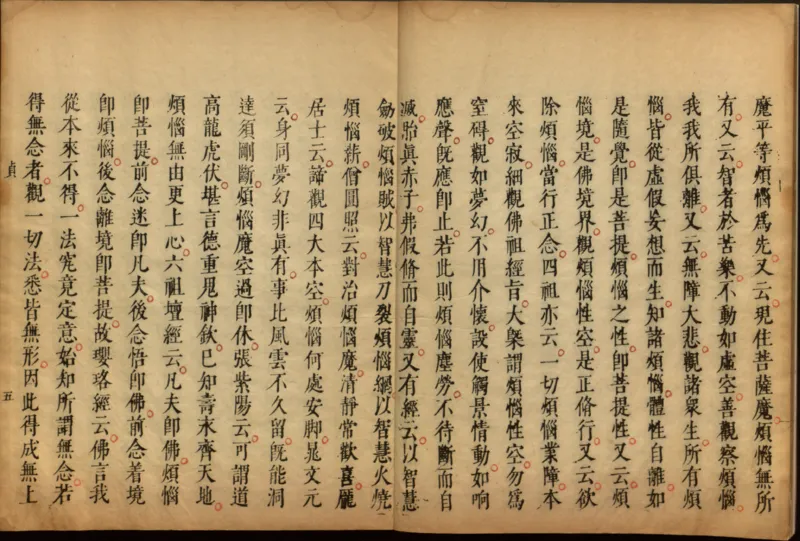 魔平等煩惱爲先又云現住菩薩魔煩惱無所
有又云智者於苦樂不動如虛空善觀察煩惱
我我所俱離又云無障大悲觀諸衆生所有煩
惱皆從虛假妄想而生知諸煩惱體性自離如
是隨覺即是菩提煩惱之性即菩提性又云煩
惱境是佛境界觀煩惱性空是正脩行又云欲
除煩惱當行正念四祖亦云一切煩惱業障本
來空寂細觀佛祖經旨大槩謂煩惱性空勿爲
窒礙觀如夢幻不用介懷設使觸景情動如响
應聲旣應即止若此則煩惱塵勞不待斷而自
滅胎眞赤子弗假脩而自靈又有經云以智慧
劒破煩惱賊以智慧刀裂煩惱網以智慧火燒
煩惱薪僧圓照云對治煩惱魔清靜常歡喜龐
居士云諦觀四大本空煩惱何處安脚晁文元
云身同夢幻非眞有事比風雲不久留旣能洞
達須剛斷煩惱魔空過即休張紫陽云可謂道
高龍虎伏堪言德重鬼神欽已知壽永齊天地
煩惱無由更上心六祖壇經云凡夫即佛煩惱
即菩提前念迷即凡夫後念悟即佛前念着境
即煩惱後念離境即菩提故瓔珞經云佛言我
從本來不得一法究竟定意始知所謂無念若
得無念者觀一切法悉皆無形因此得成無上
貞
五